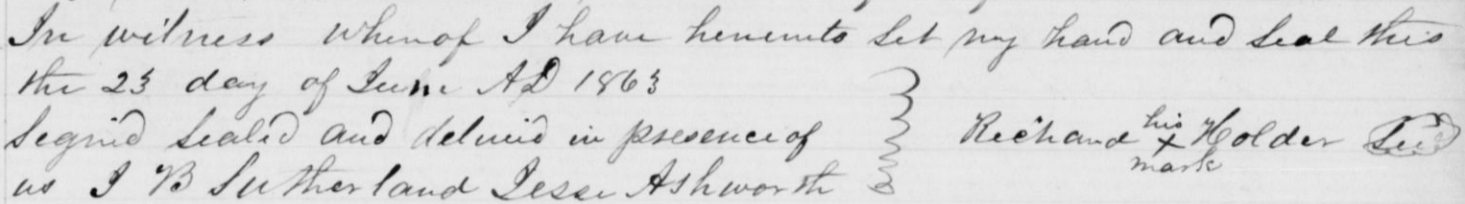 In witness whereof I have hereunto set my hand and seal this
the 23 day of June AD 1863
Signd sealed and deliverd in presence of
us J B Sutherland Jesse Ashworth
his
Richard X Holder Seal
mark